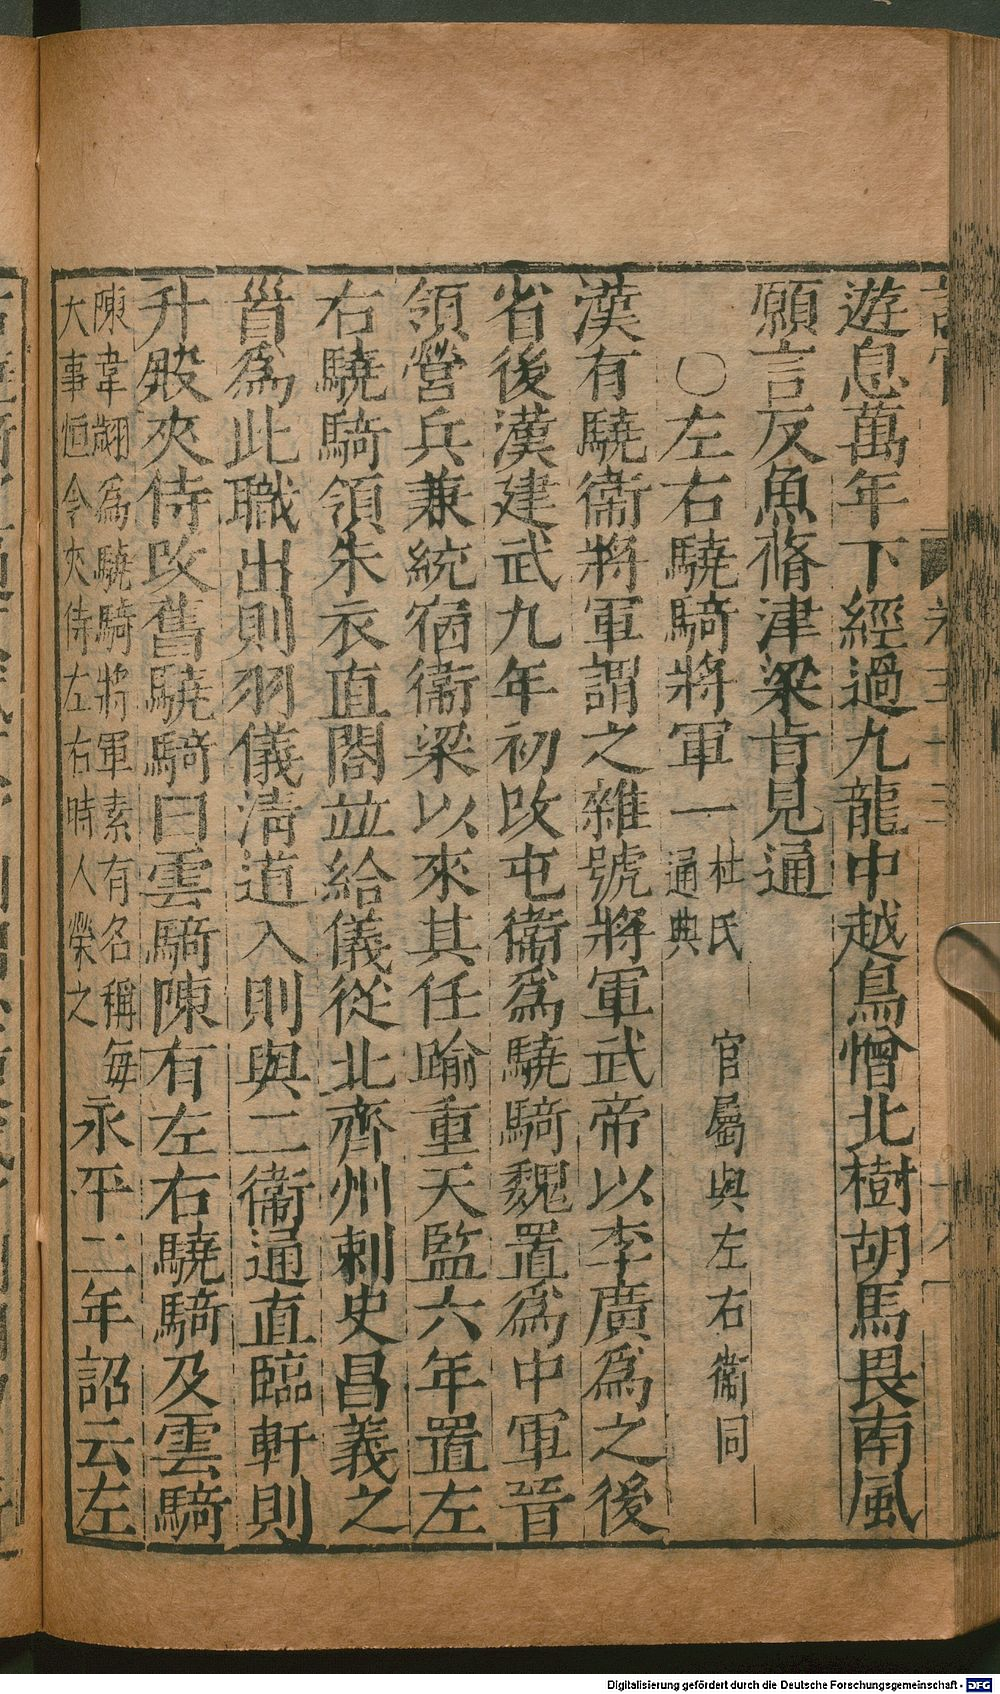 遊息萬年下經過九龍中越鳥憎北樹胡馬畏南風
願言反魚脩津梁肯見通
○左右驍騎將軍一杜氏通典 官屬與左右衞同
漢有驍衞將軍謂之雜號將軍武帝以李廣爲之後
省後漢建武九年初改屯衞爲驍騎魏置爲中軍晉
領營兵兼統宿衞梁以來其任踰重天監六年置左
右驍騎領朱衣直閤並給儀從北齊州刺史昌義之
首爲此職出則羽儀清道入則與二衞通直臨軒則
升殿夾侍改舊驍騎曰雲騎陳有左右驍騎及雲騎
陳韋翽爲驍騎將軍素有名稱每
大事恒令夾侍左右時人榮之
永平二年詔云左
Digitalisierung gefördert durch die Deutsche Forschungsgemeinschaft - DFG